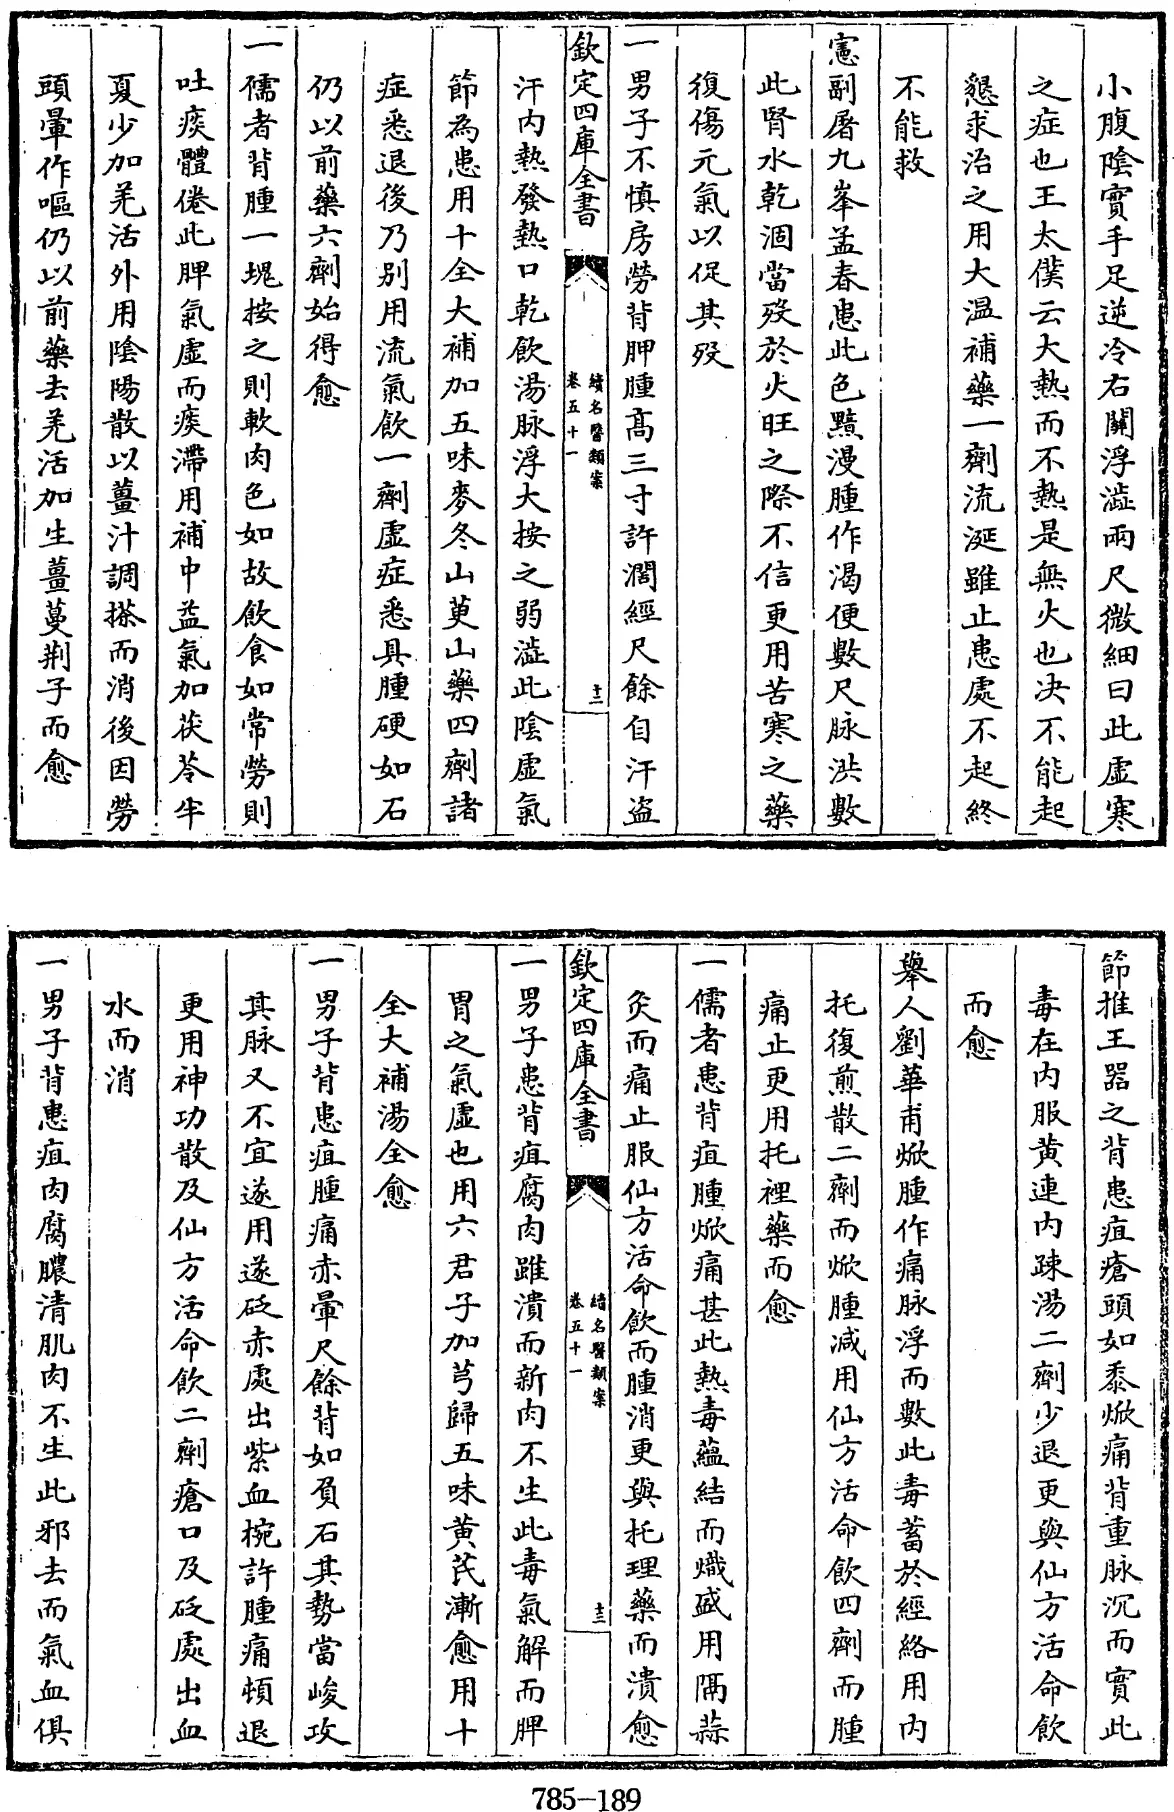 小腹陰實手足逆冷右關浮澁兩尺微細曰此虛寒
之症也王太僕云大熱而不熱是無火也决不能起
懇求治之用大温補藥一劑流涎雖止患處不起終
不能救
憲副屠九峯孟春患此色黯漫腫作渴便數尺脉洪數
此腎水乾涸當殁於火旺之際不信更用苦寒之藥
復傷元氣以促其殁
一男子不慎房勞背胛腫髙三寸許濶經尺餘自汗盗
欽定四庫全書
續名醫類案
卷五十一
十二
汗内熱發熱口乾飲湯脉浮大按之弱澁此陰虛氣
節為患用十全大補加五味麥冬山萸山藥四劑諸
症悉退後乃别用流氣飲一劑虛症悉具腫硬如石
仍以前藥六劑始得愈
一儒者背腫一塊按之則軟肉色如故飲食如常勞則
吐痰體倦此脾氣虛而痰滯用補中益氣加茯苓半
夏少加羌活外用陰陽散以薑汁調搽而消後因勞
頭暈作嘔仍以前藥去羌活加生薑蔓荆子而愈
節推王器之背患疽瘡頭如黍焮痛背重脉沉而實此
毒在内服黄連内疎湯二劑少退更與仙方活命飲
而愈
舉人劉華甫焮腫作痛脉浮而數此毒蓄於經絡用内
托復煎散二劑而焮腫减用仙方活命飲四劑而腫
痛止更用托裡藥而愈
一儒者患背疽腫焮痛甚此熱毒蘊結而熾盛用隔蒜
灸而痛止服仙方活命飲而腫消更與托理藥而潰愈
欽定四庫全書
續名醫類案
卷五十一
十三
一男子患背疽腐肉雖潰而新肉不生此毒氣解而脾
胃之氣虛也用六君子加芎歸五味黄芪漸愈用十
全大補湯全愈
一男子背患疽腫痛赤暈尺餘背如負石其勢當峻攻
其脉又不宜遂用遂砭赤處出紫血椀許腫痛頓退
更用神功散及仙方活命飲二劑瘡口及砭處出血
水而消
一男子背患疽肉腐膿清肌肉不生此邪去而氣血俱
785-189